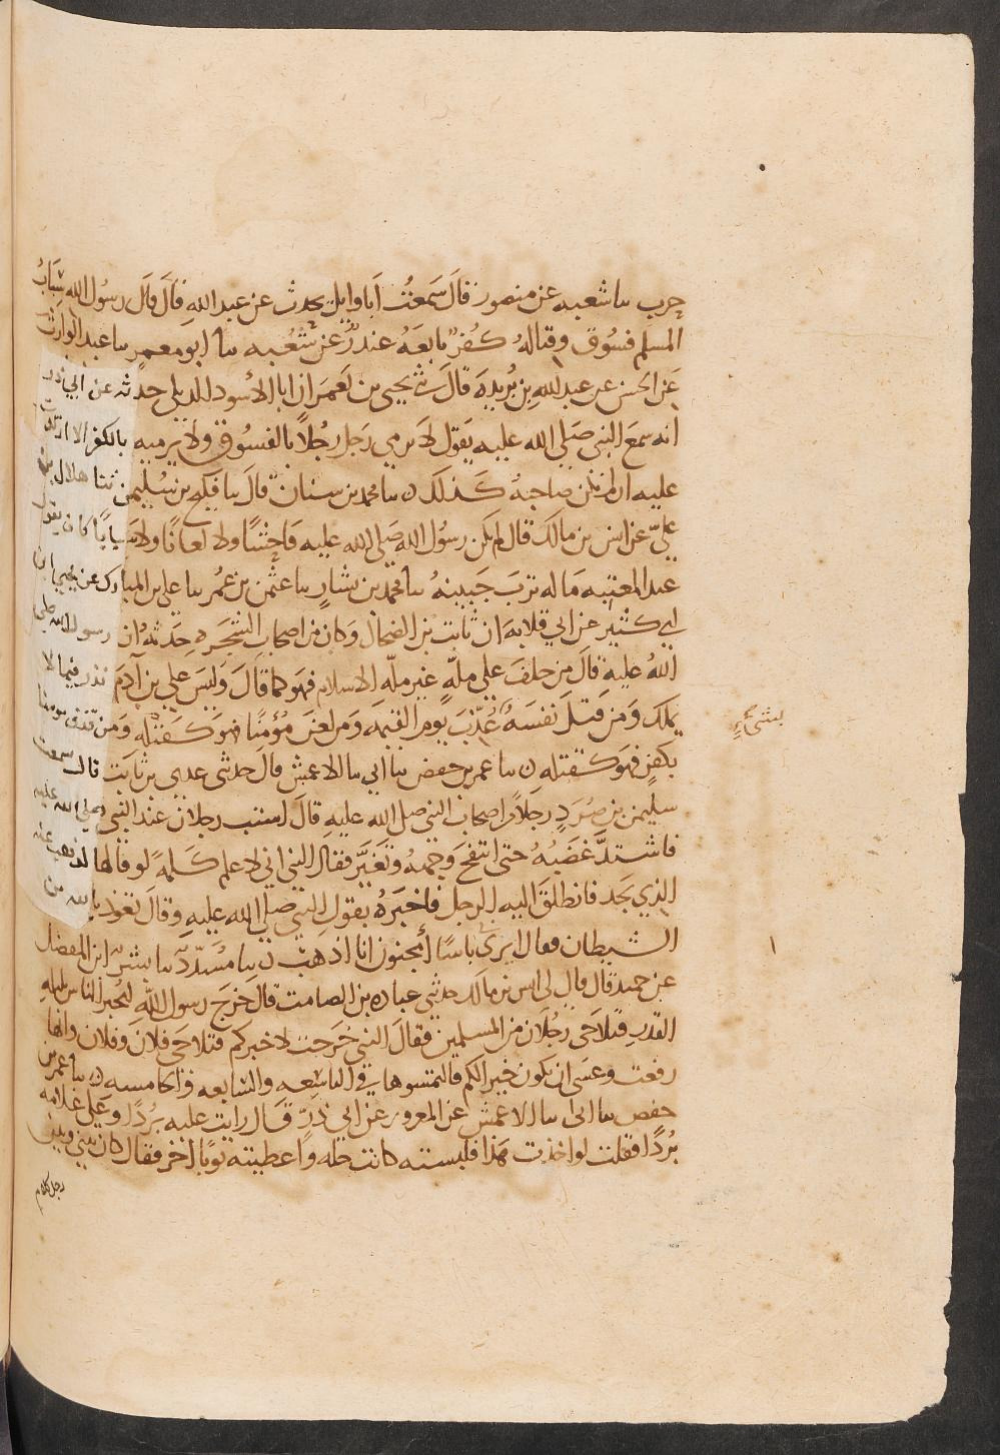 حرب نا شعبه عن منصور قال سمعت أبا وايل يحدث عن عبد الله قال قال رسول الله سباب
المسلم فسوق وقتاله كفر تابعه غندر عن شعبه نا ابو معمر نا عبد الوارث
عن الحسن عن عبد الله بن بريده قال ني يحيى بن يعمر ان ابا الأسود الديلي حدثه عن ابي ذر
انه سمع النبي صلى الله عليه يقول لا يرمي رجل رجلاً بالفسوق ولا يرميه بالكفر الا ارتدت
عليه ان لم يكن صاحبه كذلك ه نا محمد بن سنان قال نا فليح بن سليمن ثنا هلال بن
علي عن انس بن مالك قال لم يكن رسول الله صلى الله عليه فاحشًا ولا لعانًا ولا سبابًا كان يقول
عند المعتبه ما له ترب جبينه نا محمد بن بشار نا عثمن بن عمر نا علي بن المبارك عن يحيى ابن
ابي كثير عن ابي قلابه ان ثابت بن الضحاك وكان من اصحاب الشجره حدثه ان رسول الله صلى
الله عليه قال من حلف على ملة غير ملة الاسلام فهو كما قال وليس على بن آدم نذر فيما لا
يملك ومن قتل نفسه عُذّب يوم القيمه ومن لعن مؤمنًا فهو كقتله ومن قذف مومنا
بكفر فهو كقتله ه نا عمر بن حفص نا ابي نا الاعمش قال حدثني عدي بن ثابت قال سمعت
سليمن بن صرد رجلاً من اصحاب النبي صلى الله عليه قال استب رجلان عند النبي صلى الله عليه
فاشتد غضبه حتى انتفخ وجهه وتغيّر فقال النبي اني لا علم كلمة لو قالها لذهب عنه
الذي يجد فانطلق اليه الرجل فاخبره بقول النبي صلى الله عليه وقال تعوذ بالله من
الشيطان فقال ايرى باسًا أمجنون انا اذهب ه نا مسدّد نا بشر ابن المفضل
عن حميد قال قال لي انس بن مالك حدثني عباده بن الصامت قال خرج رسول الله ليخبر الناس بليلة
القدر فتلاحى رجلان من المسلمين فقال النبي خرجت لاخبركم فتلاحى فلان وفلان وانها
رفعت وعسى ان يكون خيرا لكم فالتمسوها في التاسعه والسابعه والخامسه ه نا عمر بن
حفص نا ابي نا الاعمش عن المعرور عن ابي ذر قال رايت عليه بُردًا وعلى غلامه
بُردًا فقلت لو اخذت هذا فلبسته كانت حله واعطيته ثوبا اخر فقال كان بيني وبين
رجل كلام
بشيءٍ
١